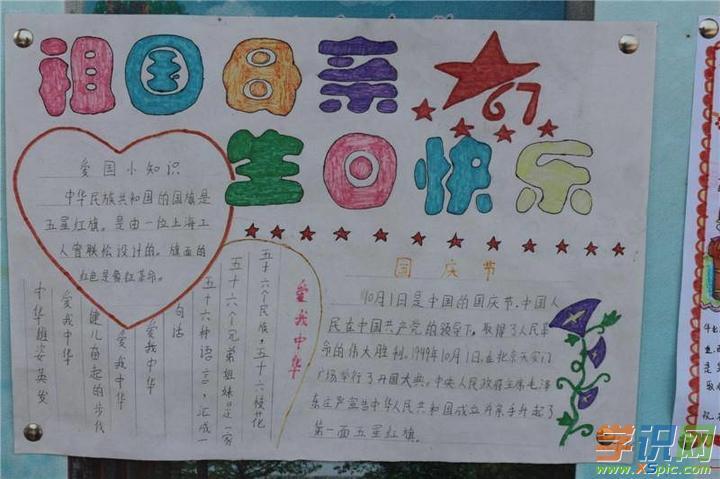 祖国母亲
67
生日快乐
爱国小知识
中华民族共和国的国旗是
五星红旗。是由一位上海工
人曾联松设计的。旗面的
红色是象征革命。
爱我中华
五十六个民族,五十六枝花
五十六个兄弟姐妹是一家
五十六种语言,汇成一
句话
爱我中华
爱我中华
健儿奋起的步伐
爱我中华
中华雄姿英发
国庆节
10月1日是中国的国庆节.中国人
民在中国共产党的领导下,取得了人民革
命的伟大胜利。1949年10月1日,在北京天安门
广场举行了开国大典。中央人民政府主席毛泽
东庄严宣告中华人民共和国成立并亲手升起了
第一面五星红旗。
学识网
www.XSpic.com